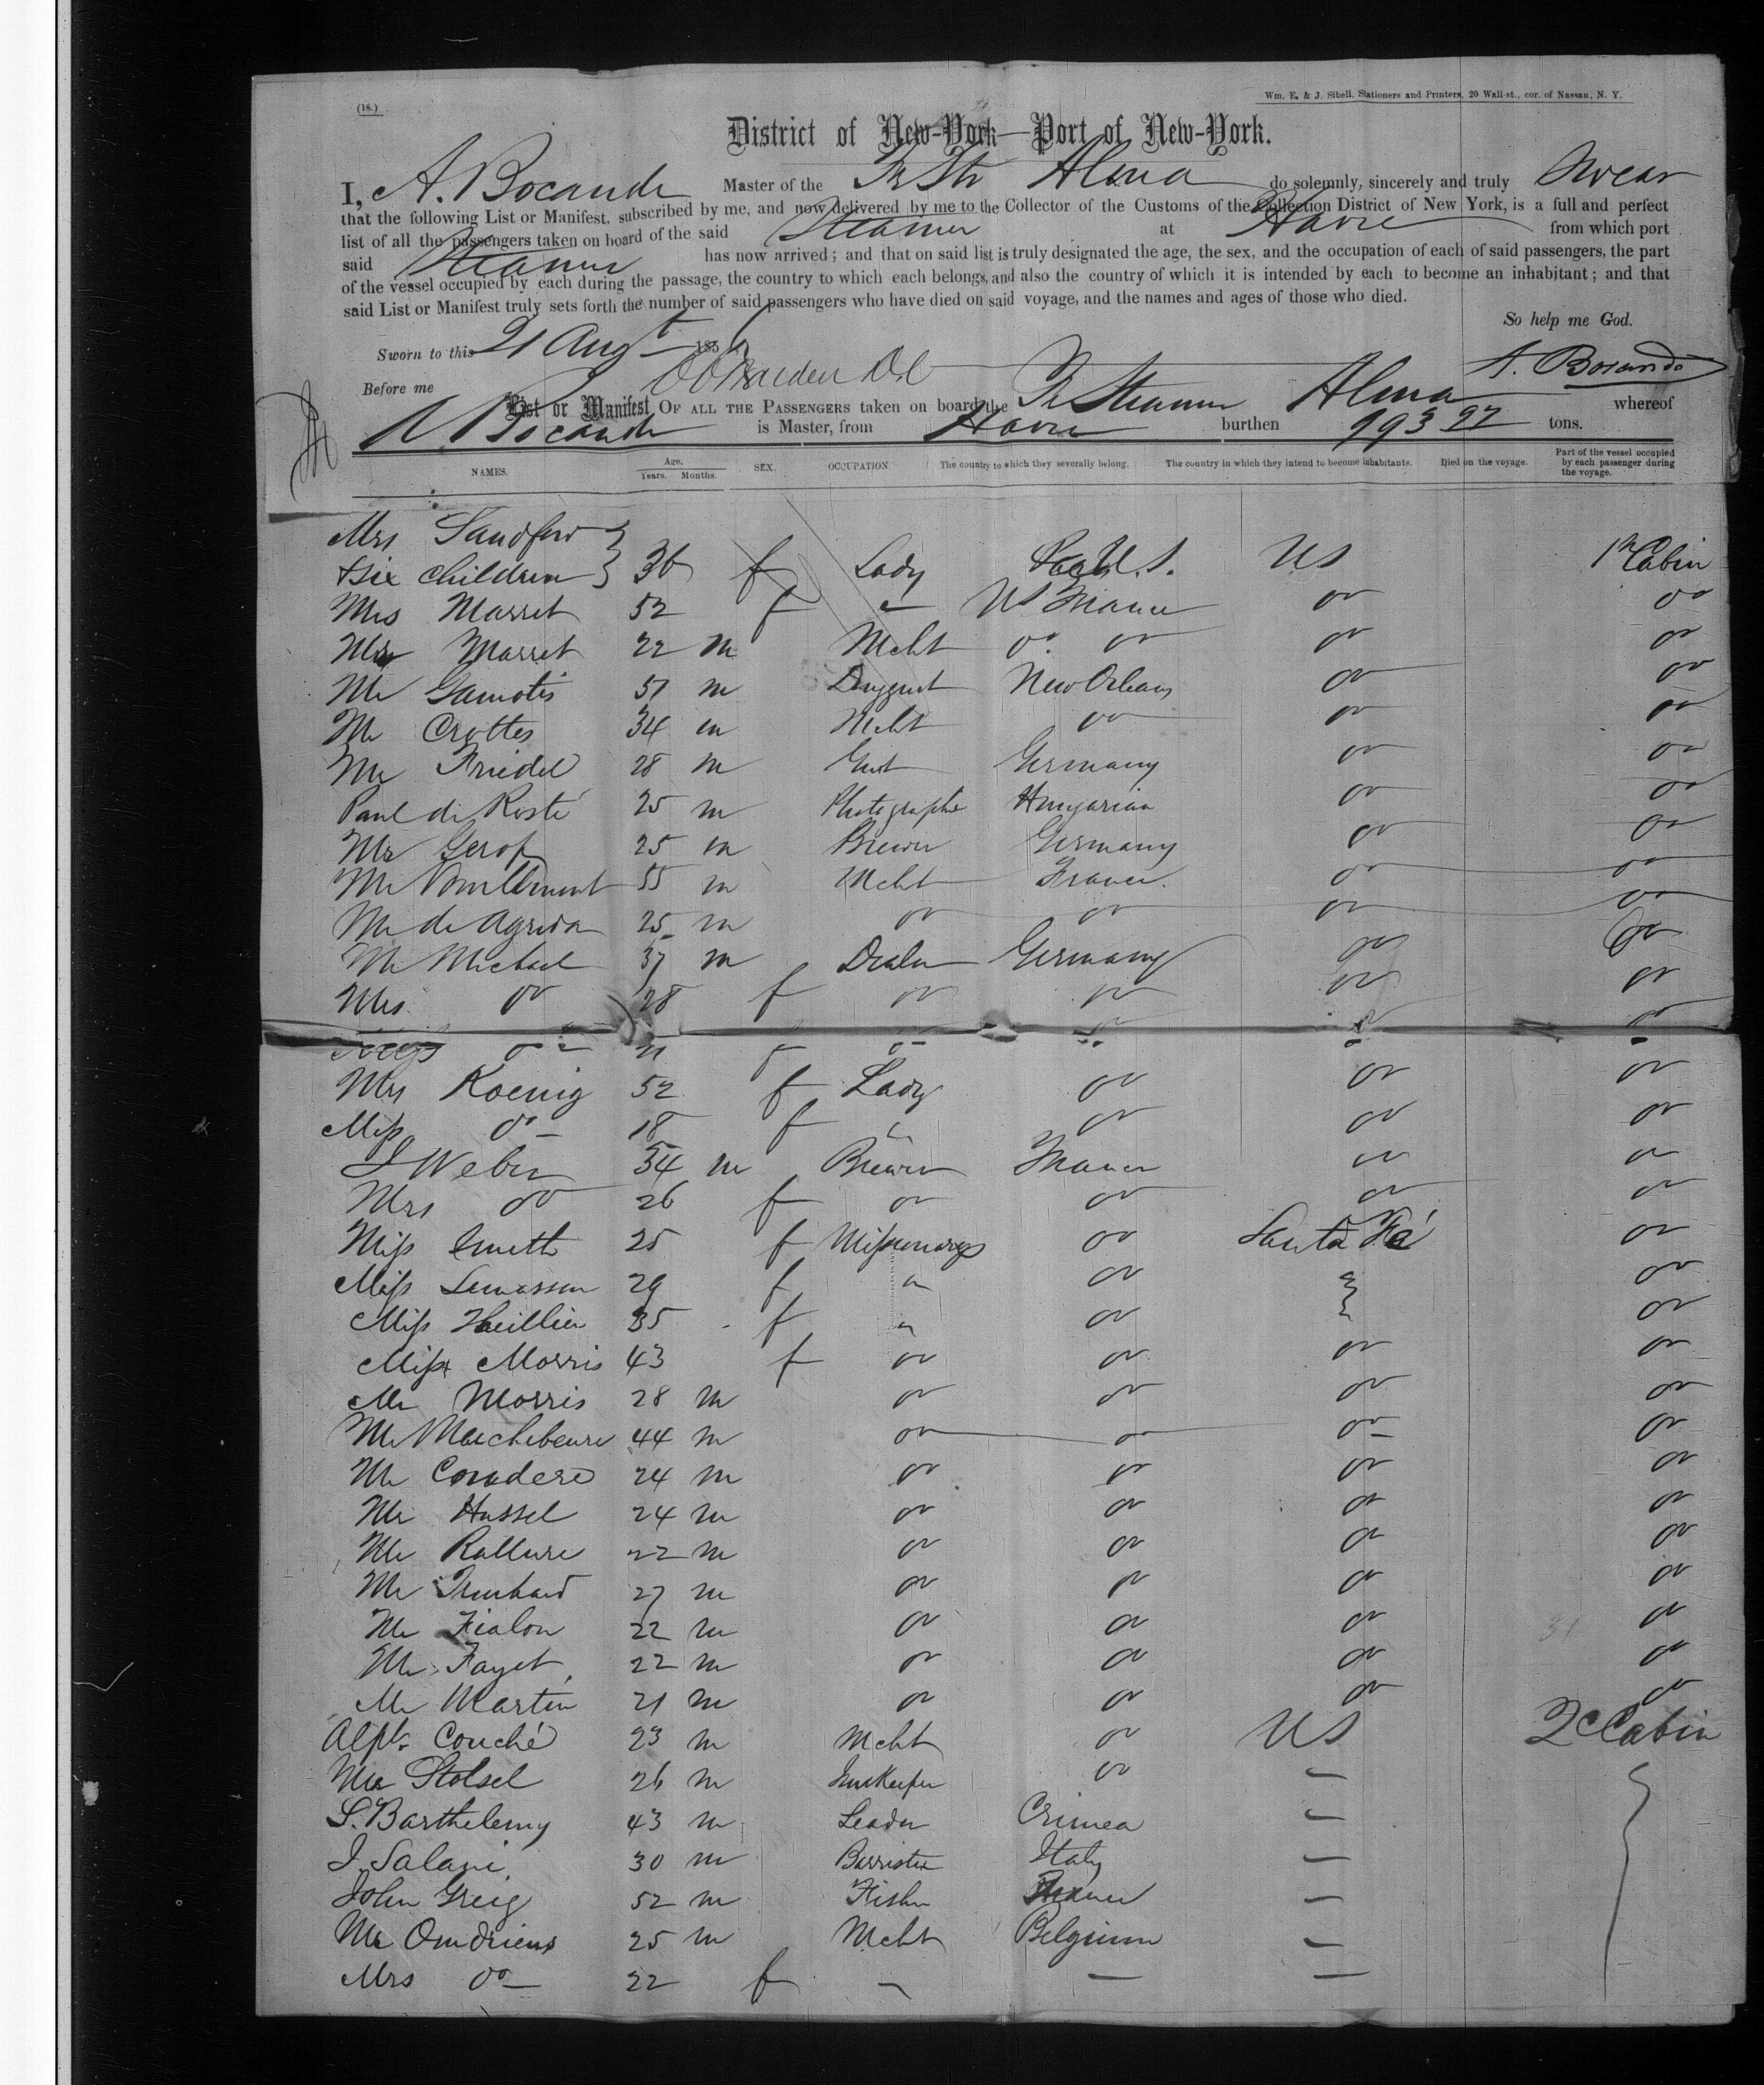 (18.)
Wm. E. & J. Sibell, Stationers and Printers, 20 Wall-st., cor. of Nassau, N. Y.
District of New-York—Port of New-York.
I, A. Bocande Master of the Fr Str Alma do solemnly, sincerely and truly swear
that the following List or Manifest, subscribed by me, and now delivered by me to the Collector of the Customs of the Collection District of New York, is a full and perfect
list of all the passengers taken on board of the said Steamer at Havre from which port
said Steamer has now arrived; and that on said list is truly designated the age, the sex, and the occupation of each of said passengers, the part
of the vessel occupied by each during the passage, the country to which each belongs, and also the country of which it is intended by each to become an inhabitant; and that
said List or Manifest truly sets forth the number of said passengers who have died on said voyage, and the names and ages of those who died.
So help me God.
Sworn to this 21 Augt 1856
A. Bocande
Before me
List or Manifest OF ALL THE PASSENGERS taken on board the Fr Steamer Alma whereof
A Bocande is Master, from Havre burthen 993 97 tons.
NAMES. Age, Years. Months. SEX. OCCUPATION. The country to which they severally belong. The country in which they intend to become inhabitants. Died on the voyage. Part of the vessel occupied by each passenger during the voyage.
Mrs Sandford
& six children 36 f Lady U.S. US 1st Cabin
Mrs Marret 52 f " France do do
Mr Marret 22 m Mcht do do do do
Mr Gamotis 51 m Druggist New Orleans do do
Mr Crottes 34 m Mcht do do do
Mr Friedel 28 m Gent Germany do do
Paul de Rosté 25 m Photographe Hungarian do do
Mr Gerof 25 m Brewer Germany do do
Mr 55 m Mcht France. do do
Mr de Agreda 25 m do do do do
Mr Michael 37 m Dealer Germany do do
Mrs do 28 f do do do do
do
Mrs Koenig 52 f Lady do do do
Miss do 18 f " do do do
J Weber 34 m Brewer France do do
Mrs do 26 f do do do do
Miss 25 f Missionarys do Santa Fé do
Miss Lemasson 29 f " do do
Miss 35 f " do do
Miss Morris 43 f do do do do
Mr Morris 28 m do do do do
Mr Machebeure 44 m do do do do
Mr Coudere 24 m do do do do
Mr Hussel 24 m do do do do
Mr Rallure 22 m do do do do
Mr Truchard 27 m do do do do
Mr Fialon 22 m do do do do
Mr Fayet 22 m do do do do
Mr Martin 21 m do do do do
Alph. Couché 23 m Mcht do US 2d Cabin
Mr Stolsel 26 m Innkeeper do "
S. Barthelemy 43 m Crimea "
J. Salani 30 m Barrister Italy "
John Greig 52 m France "
Mr Omdriens 25 m Mcht Belgium "
Mrs do 22 f " " "